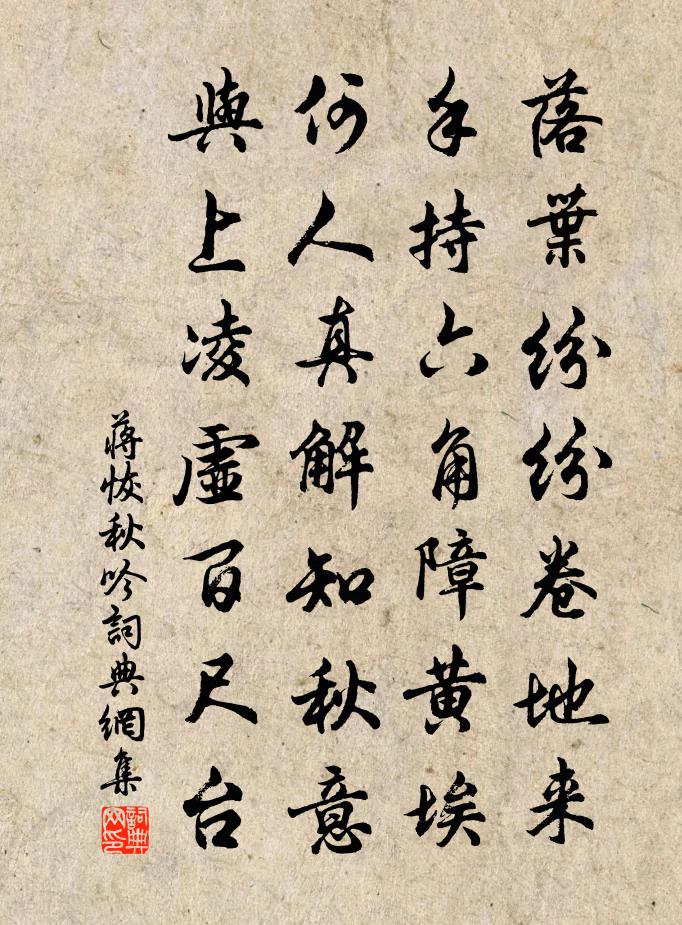 落葉紛紛卷地来
手持六角障黄埃
何人真解知秋意
與上凌虛百尺台
蔣恢秋吟詞典網集
詞典网印